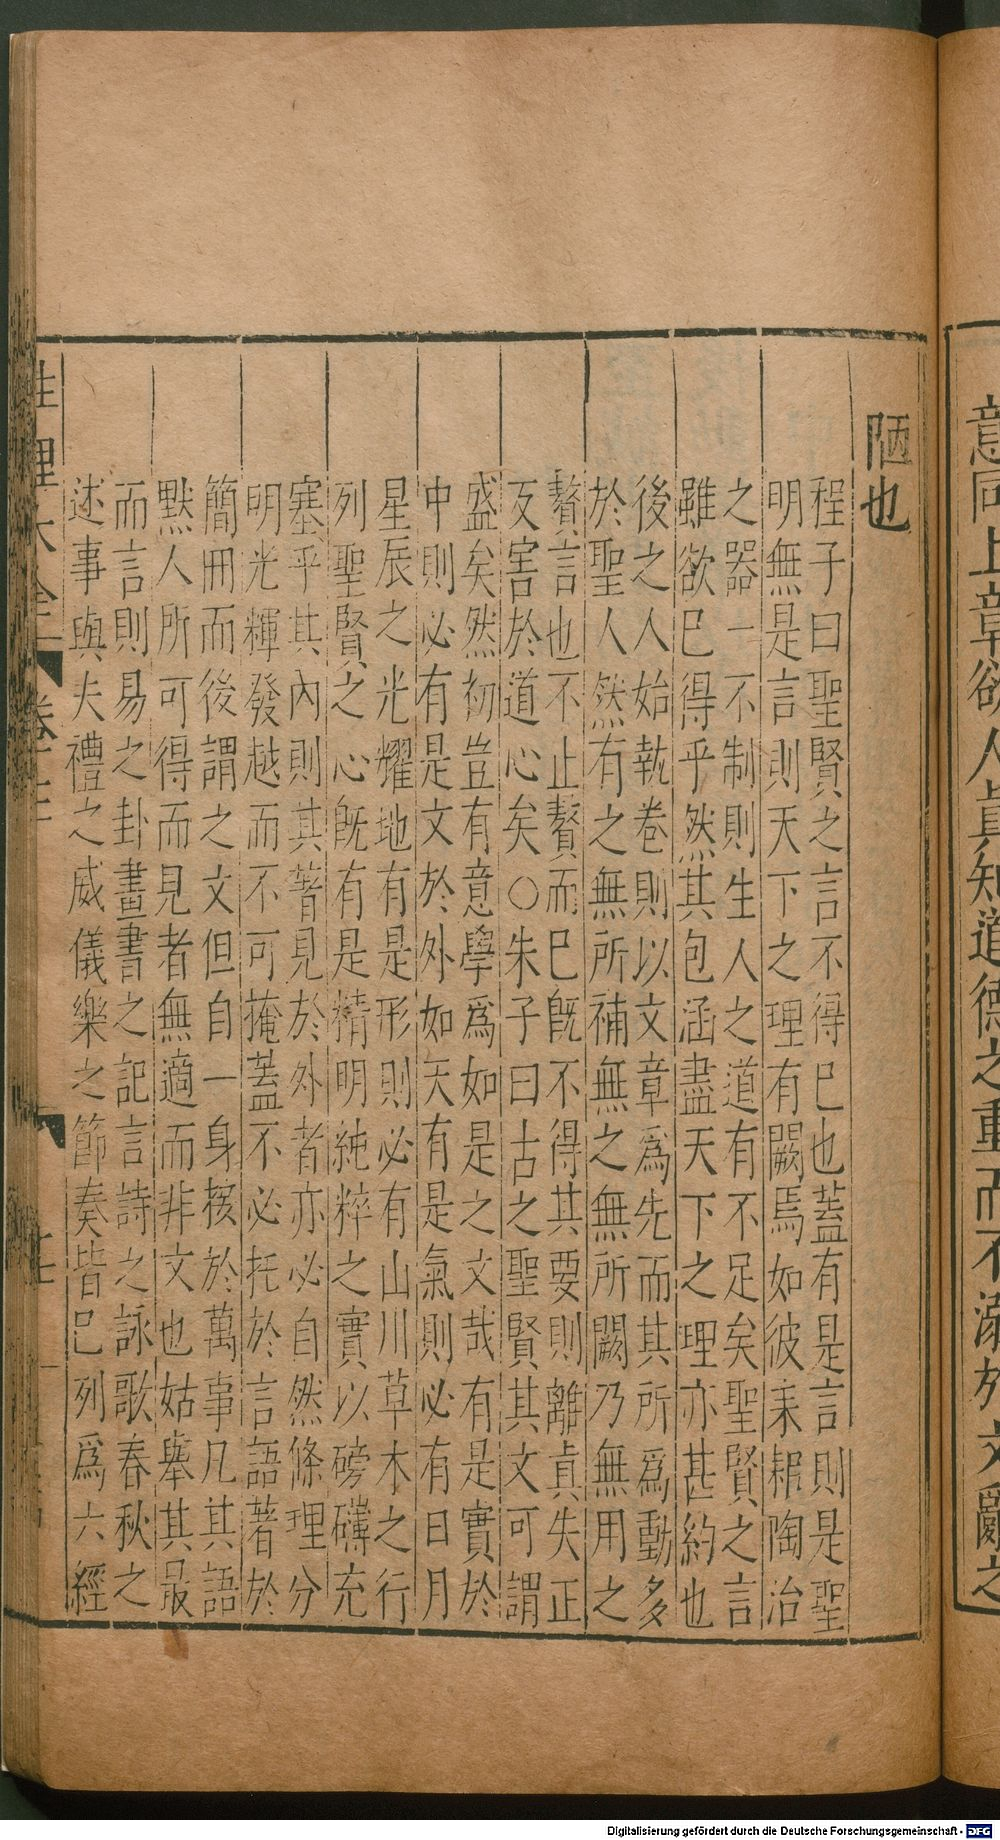 意同上章欲人真知道德之重而不溺於文辭之
陋也
程子曰聖賢之言不得巳也蓋有是言則是聖
明無是言則天下之理有闕焉如彼耒耜陶冶
之器一不制則生人之道有不足矣聖賢之言
雖欲巳得乎然其包涵盡天下之理亦甚約也
後之人始執卷則以文章爲先而其所爲動多
於聖人然有之無所補無之無所闕乃無用之
贅言也不止贅而巳旣不得其要則離眞失正
反害於道心矣○朱子曰古之聖賢其文可謂
盛矣然初豈有意學爲如是之文哉有是實於
中則必有是文於外如天有是氣則必有日月
星辰之光耀地有是形則必有山川草木之行
列聖賢之心旣有是精明純粹之實以磅礴充
塞乎其內則其著見於外者亦必自然條理分
明光輝發越而不可掩蓋不必托於言語著於
簡冊而後謂之文但自一身接於萬事凡其語
默人所可得而見者無適而非文也姑舉其最
而言則易之卦畫書之記言詩之詠歌春秋之
述事與夫禮之威儀樂之節奏皆巳列爲六經
性理大全 卷二
Digitalisierung gefördert durch die Deutsche Forschungsgemeinschaft - DFG